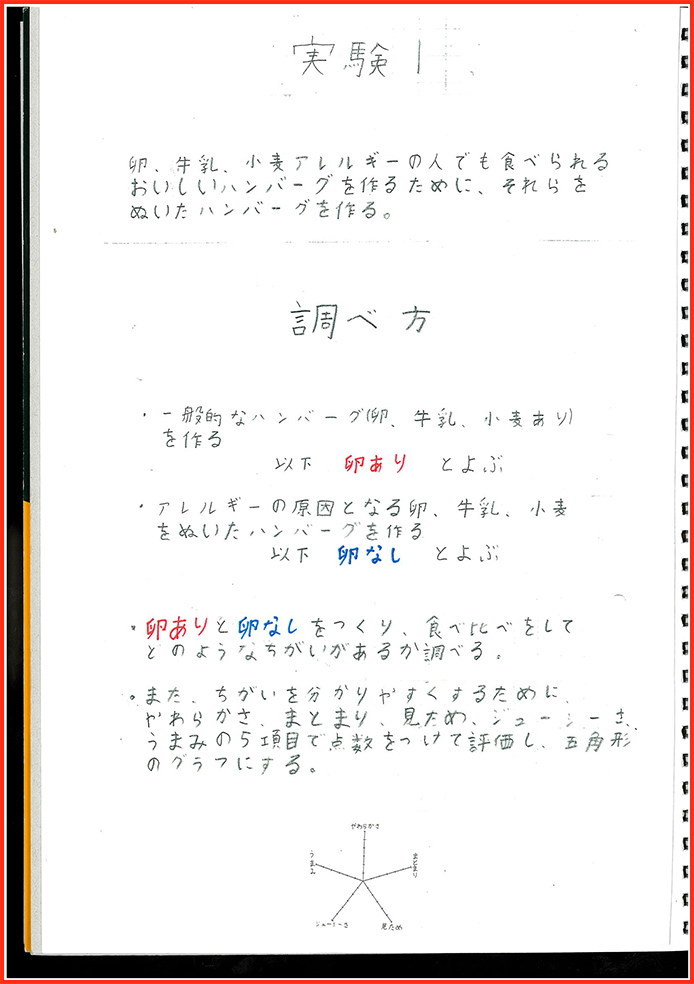 実験1
卵、牛乳、小麦アレルギーの人でも食べられる
おいしいハンバーグを作るために、それらを
ぬいたハンバーグを作る。
調べ方
・一般的なハンバーグ(卵、牛乳、小麦あり)
を作る
以下 卵あり とよぶ
・アレルギーの原因となる卵、牛乳、小麦
をぬいたハンバーグを作る
以下 卵なし とよぶ
・卵ありと卵なしをつくり、食べ比べをして
どのようなちがいがあるか調べる。
・また、ちがいを分かりやすくするために、
やわらかさ、まとまり、見ため、ジューシーさ、
うまみの5項目で点数をつけて評価し、五角形
のグラフにする。
やわらかさ
うまみ
まとまり
ジューシーさ
見ため